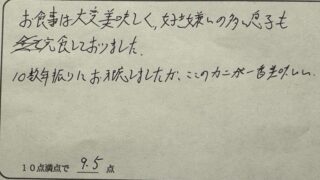 お食事は大変美味しく、好き嫌いの多い息子も
完食しておりました。
10数年振りにお邪魔しましたが、ここのカニが一番美味しい。
10点満点で 9.5 点